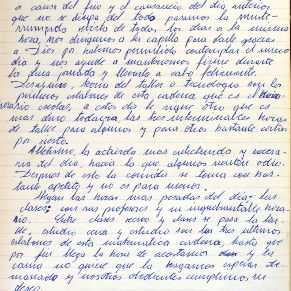 a causa del frio y el cansancio del dia anterior
que no se disipa del todo pasamos la
interrumpida storia de todos los dias a la misma
hora, nos dirigimos a la capilla para darle gracias
a Dios por habernos permitido contemplar el nuevo
dia y nos ayude a mantenernos firme durante
la dura jornada y llevarla a cabo felizmente.
Desayuno, teoria de taller o tecnologia son los
primeros eslabones de esta cadena, que es el
horario escolar, a esto de le sigue otro que es
mas duro todavia, las tres interminables horas
de taller para algunos y para otros bastante cortas
por cierto.
Atletismo, la actividad mas reducida y necesaria
del dia, hacia la que algunos sienten odio.
Despues de esto la comida se toma con
bastante apetito y no es para menos.
Llegan las horas mas pesadas del dia: las
clases, con sus profesores y su inaguantable
horario. Entre clases recreo y clases se pasa la
tarde, estudio cena y estudio son los tres ultimos
eslabones de esta matematica cadena, hasta que
por fin llega la hora de acostarnos la
cama no quiere que la hagamos esperar de
masiado y nosotros obedientes cumplimos su
deseo.